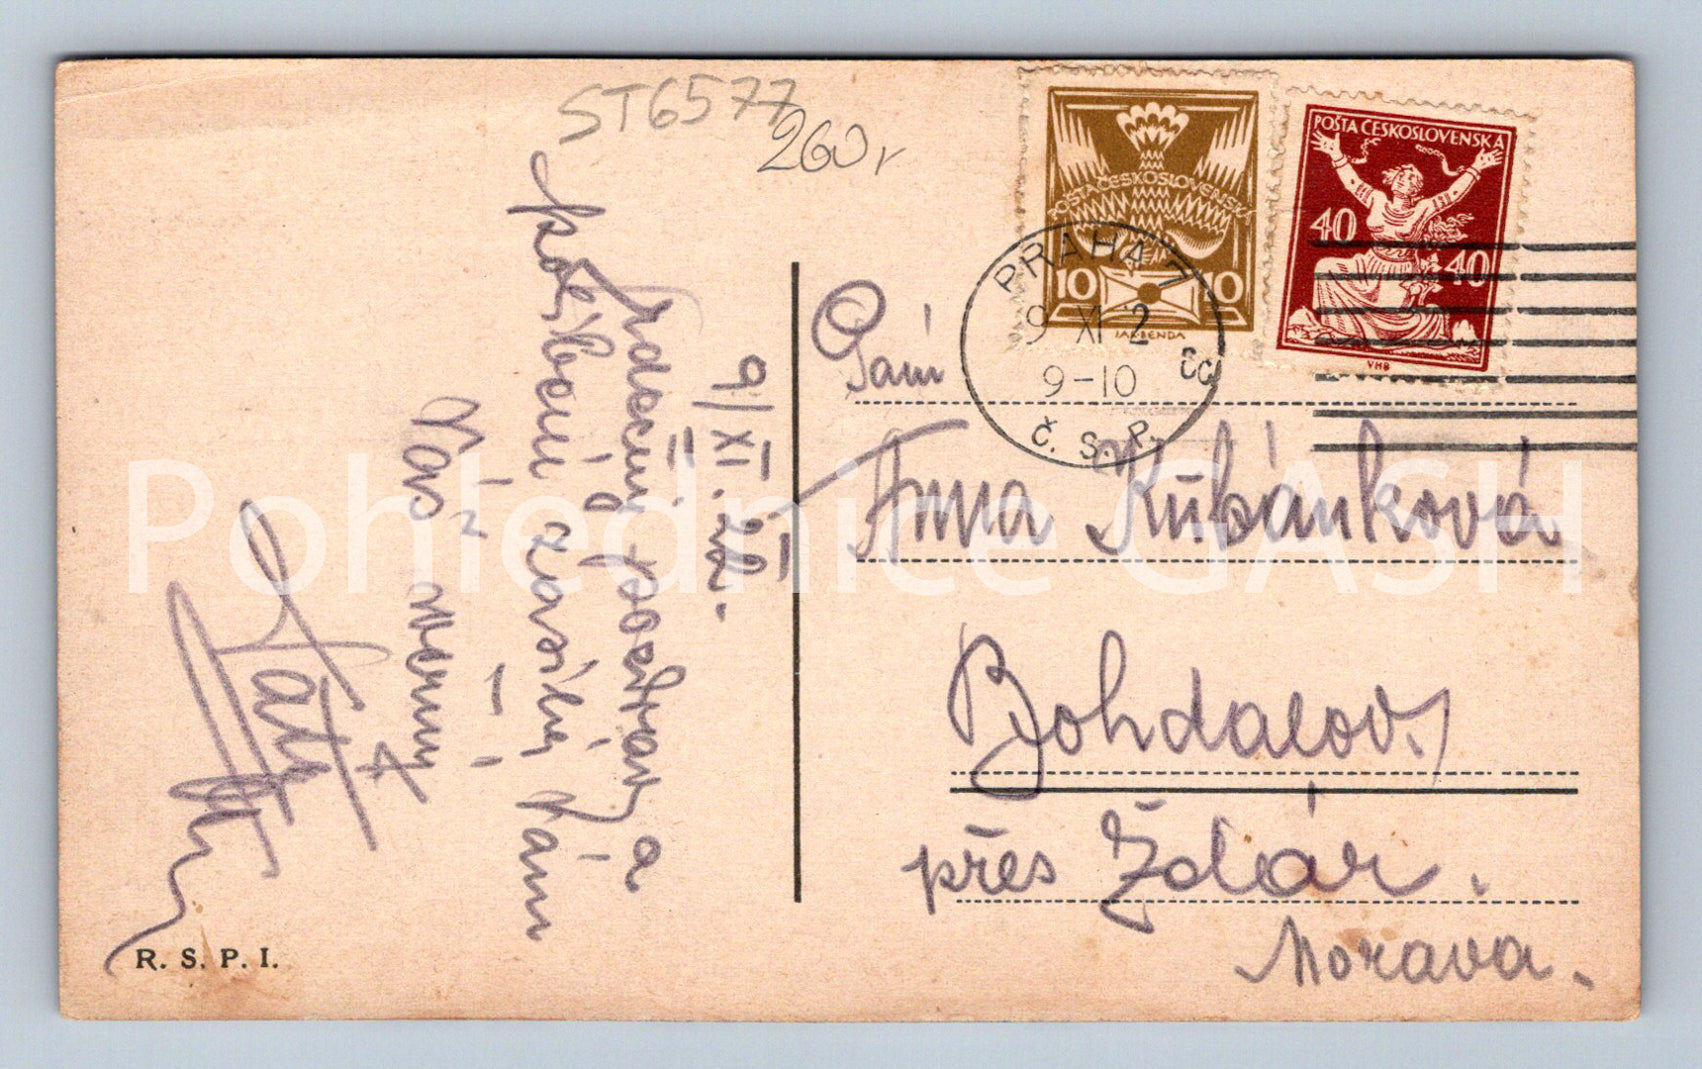 ST6577
260,
9/XI. 21.
Srdečný pozdrav a
poděkování zasílá Vám
Váš
R. S. P. I.
POŠTA ČESKOSLOVENSKÁ
10 10
JAK. BENDA
POŠTA ČESKOSLOVENSKÁ
40
40
VHB
PRAHA 7
9 XI 2
9-10
Č. S. P.
Paní
Anna Kubánková
Bohdalov
přes Žďár.
Morava.
Pohlednice GASH